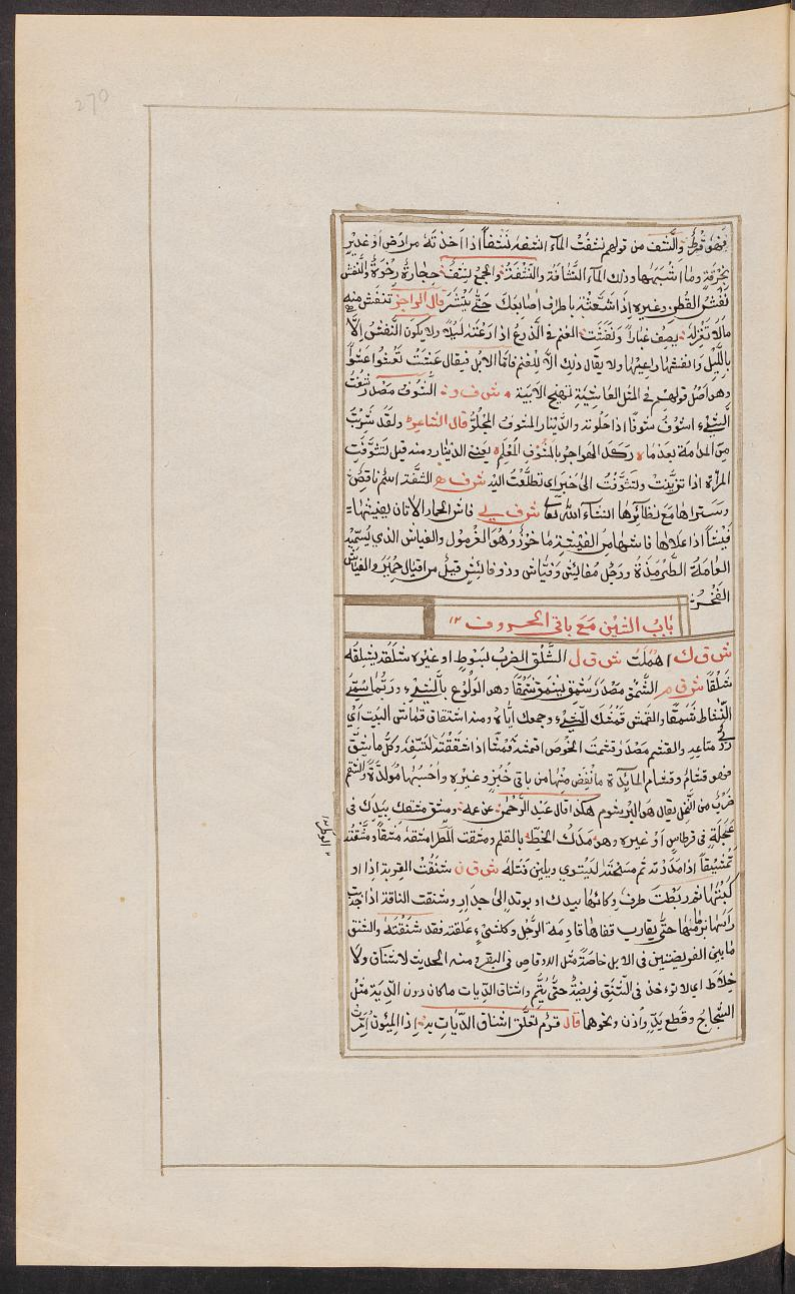 270
فهو قطر والنشف من قولهم نشفت الماء انشفه نشفاً اذا اخذته من ارض او غدير
بخرقة وما اشبهها وذلك الماء النشافة والنشفة والجمع نشف حجارة رخوة والنفش
نفش القطن وغيره اذا شعثته باطراف اصابعك حتى ينتشر قال الراجز تنفش منه
مالا تغزله يصف غباراً ونفشت الغنم في الزرع اذا رعته ليلا ولا يكون النفش الا
بالليل وانفشها راعيها ولا يقال ذلك الا للغنم فاما الابل فيقال عشت تعشوا عشوا
وهو اصل قولهم في المثل العاشية تهيج الآبية ش ف و الشوف مصدر شفت
الشيء اشوف شوفا اذا جلوته والدينار المشوف المجلو قال الشاعر ولقد شربت
من المدامة بعدما ركد الهواجر بالمشوف المعلم يعني الدينار ومنه قيل تشوفت
المرأة اذا تزينت وتشوفت الى خبر اى تطلعت اليه ش ف ه الشفة اسم ناقص
وستراها مع نظايرها انشاء الله تعا ش ف ي فاش الحمار الاتان يفيشها
فيشاً اذا علاها فاشها من الفيشة ماخوذ وهو الغرمول والفياش الذي يسميه
العامة الطرمذة ورجل مفايش وفياش وذو فائش قيل من اقيال حمير والفياش
الفخر
باب الشين مع باقي الحروف ١٢
ش ق ك اهملت ش ق ل الشلق الضرب بسوط او غيره شلقه يشلقه
شلقاً ش ق م الشمق مصدر شمق يشمق شمقا وهو الولوع بالشيء وربما سمي
النشاط شمقا والقمش قمشك الشيء وجمعك اياه ومنه اشتقاق قماش البيت اي
ردي متاعه والقشم مصدر قشمت الخوص اقشمه قشما اذا شققته لتسفه وكل ما شق
فهو قشام وقشام المايدة ما نفض منها من باقي خبز وغيره واحسبها مولدة والقشم
ضرب من النخل يقال هو البرشوم هكذا قال عبد الرحمن عن عمه ومشق مشقك بيدك في
عجلة في قرطاس او غيره وهو مدك الخط بالقلم ومشقت الوتر امشقه مشقا ومشقته
تمشيقاً اذا مددته ثم مسحته ليستوي ويلين فتله ش ق ن شنقت القربة اذا او
كيتها ثم ربطت طرف وكائها بيدك او بوتد الى جدار وشنقت الناقة اذا جذبت
راسها بزمامها حتى يقارب قفاها قادمة الرحل وكل شيء علقته فقد شنقته والشنق
ما بين الفريضتين في الابل خاصة مثل الاوقاص في البقر ومنه الحديث لا شناق ولا
خلاط اي لا توءخذ في الشنق فريضة حتى يتم واشناق الديات ما كان دون الدية مثل
الشجاج وقطع يد واذن ونحوهما قال قرم تعلق اشناق الديات به اذا الميئون امرت
الوتر ١٢